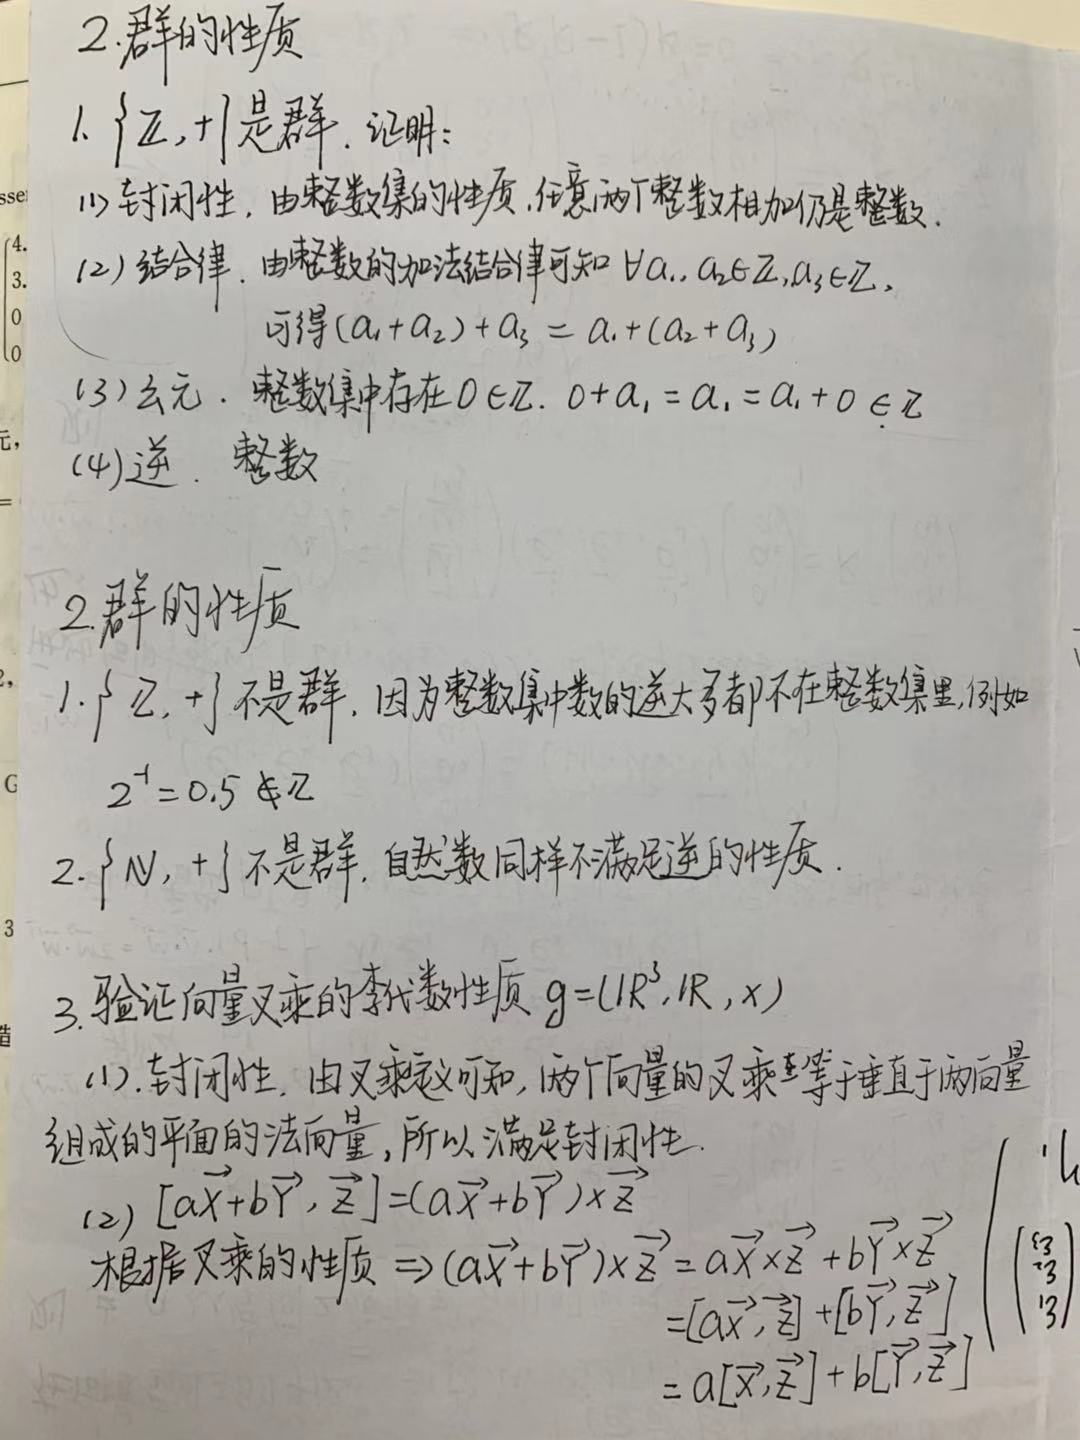 2.群的性质
1. {Z, +}是群. 证明:
(1) 封闭性. 由整数集的性质,任意两个整数相加仍是整数.
(2) 结合律. 由整数的加法结合律可知 ∀a₁, a₂∈Z, a₃∈Z,
可得(a₁+a₂)+a₃ = a₁+(a₂+a₃)
(3) 幺元. 整数集中存在0∈Z. 0+a₁=a₁=a₁+0 ∈Z
(4) 逆. 整数
2.群的性质
1. {Z, +}不是群. 因为整数集中数的逆大多都不在整数集里,例如
2⁻¹=0.5∉Z
2. {N, +}不是群. 自然数同样不满足逆的性质.
3.验证向量叉乘的李代数性质 g=(R³, R, ×)
(1). 封闭性. 由叉乘定义可知, 两个向量的叉乘等于垂直于两向量
组成的平面的法向量,所以满足封闭性.
(2) [aX⃗+bY⃗, Z⃗]=(aX⃗+bY⃗)×Z⃗
根据叉乘的性质 ⇒(aX⃗+bY⃗)×Z⃗=aX⃗×Z⃗+bY⃗×Z⃗
=[aX⃗,Z⃗]+[bY⃗,Z⃗]
=a[X⃗,Z⃗]+b[Y⃗,Z⃗]